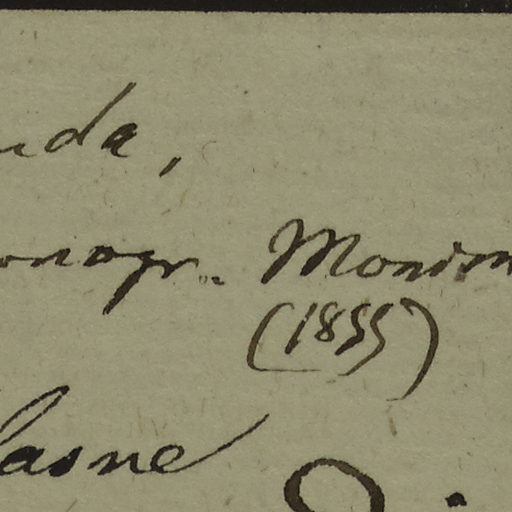 uda,
onogr. Monim
(1855)
lasne